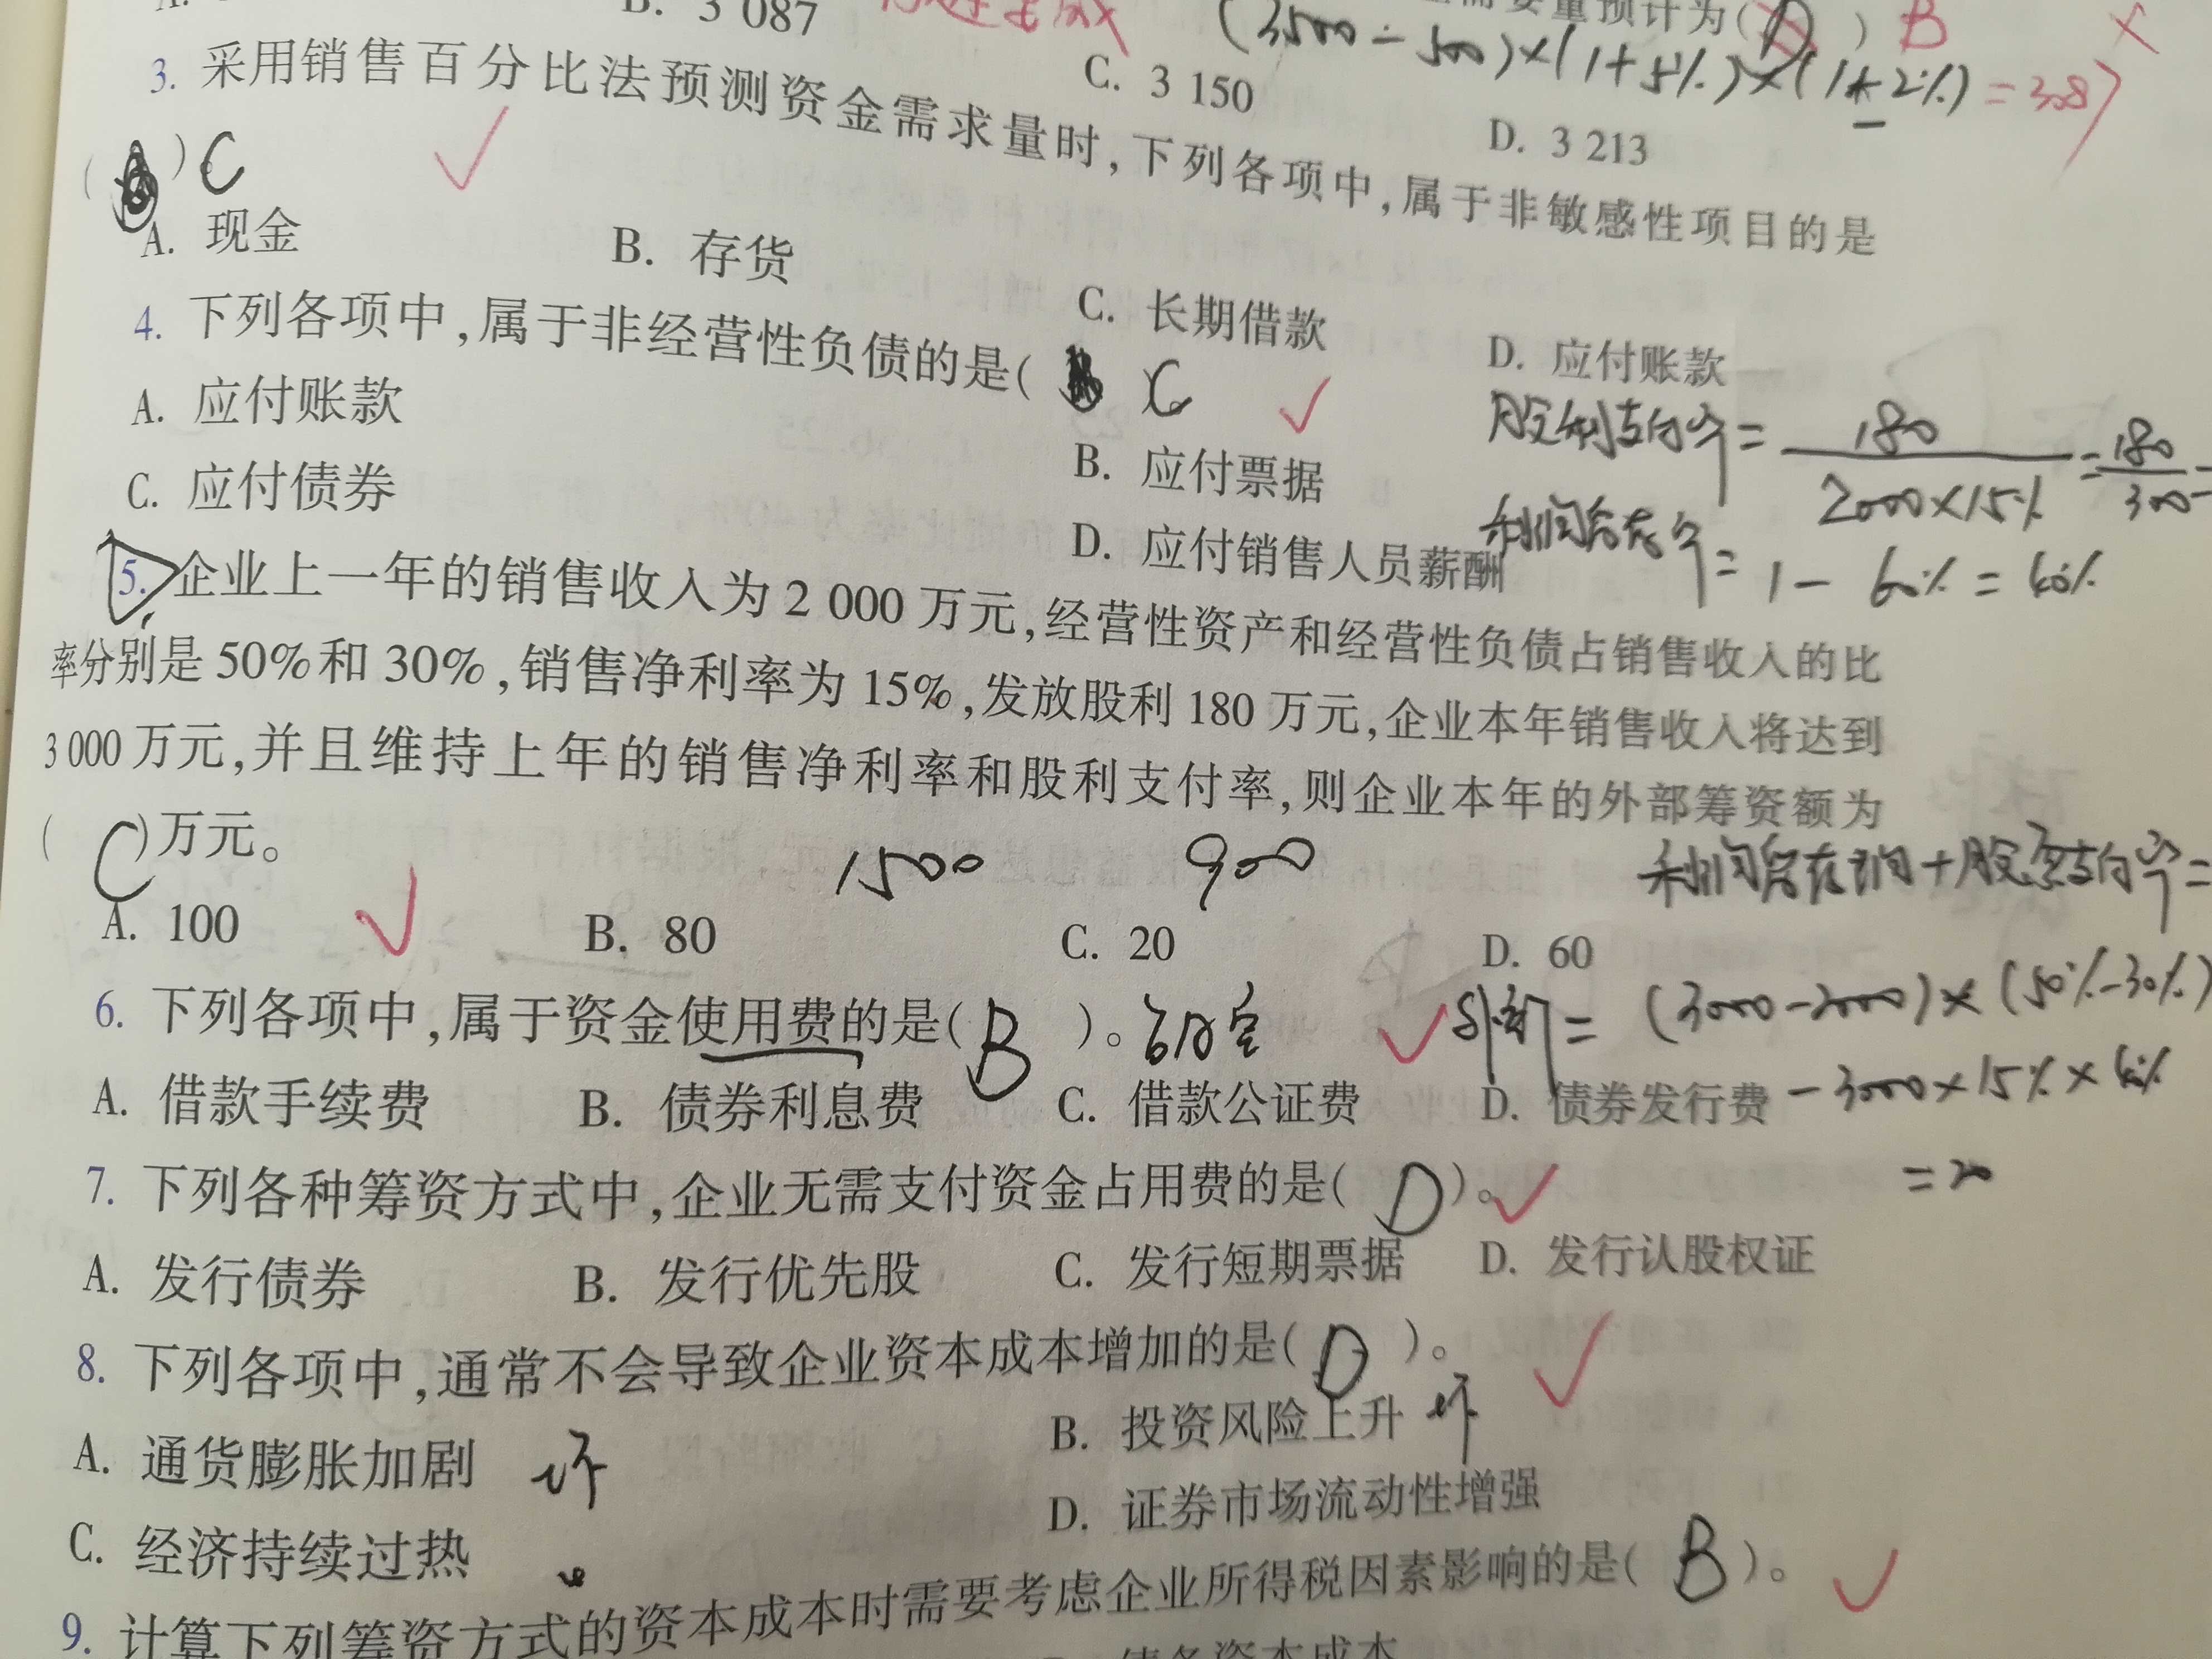 B. 3 087
需要量预计为( D ) B ×
(3500-500)×(1+5%)×(1+2%) =3087
C. 3 150
D. 3 213
3. 采用销售百分比法预测资金需求量时,下列各项中,属于非敏感性项目的是
( )。C
A. 现金 B. 存货 C. 长期借款 D. 应付账款
4. 下列各项中,属于非经营性负债的是( C
A. 应付账款 B. 应付票据
C. 应付债券 D. 应付销售人员薪酬
股利支付率 = 180/2000×15% = 180/300 =
利润留存率 = 1 - 60% = 40%
5. 企业上一年的销售收入为 2 000 万元,经营性资产和经营性负债占销售收入的比
率分别是 50% 和 30%,销售净利率为 15%,发放股利 180 万元,企业本年销售收入将达到
3 000 万元,并且维持上年的销售净利率和股利支付率,则企业本年的外部筹资额为
( C )万元。
1500 900
A. 100 B. 80 C. 20 D. 60
= (3000-2000)×(50%-30%)
-3000×15%×40%
=20
6. 下列各项中,属于资金使用费的是( B )。
A. 借款手续费 B. 债券利息费 C. 借款公证费 D. 债券发行费
7. 下列各种筹资方式中,企业无需支付资金占用费的是( D )。
A. 发行债券 B. 发行优先股 C. 发行短期票据 D. 发行认股权证
8. 下列各项中,通常不会导致企业资本成本增加的是( D )。
A. 通货膨胀加剧 B. 投资风险上升
C. 经济持续过热 D. 证券市场流动性增强
9. 计算下列筹资方式的资本成本时需要考虑企业所得税因素影响的是( B )。
债务资本成本